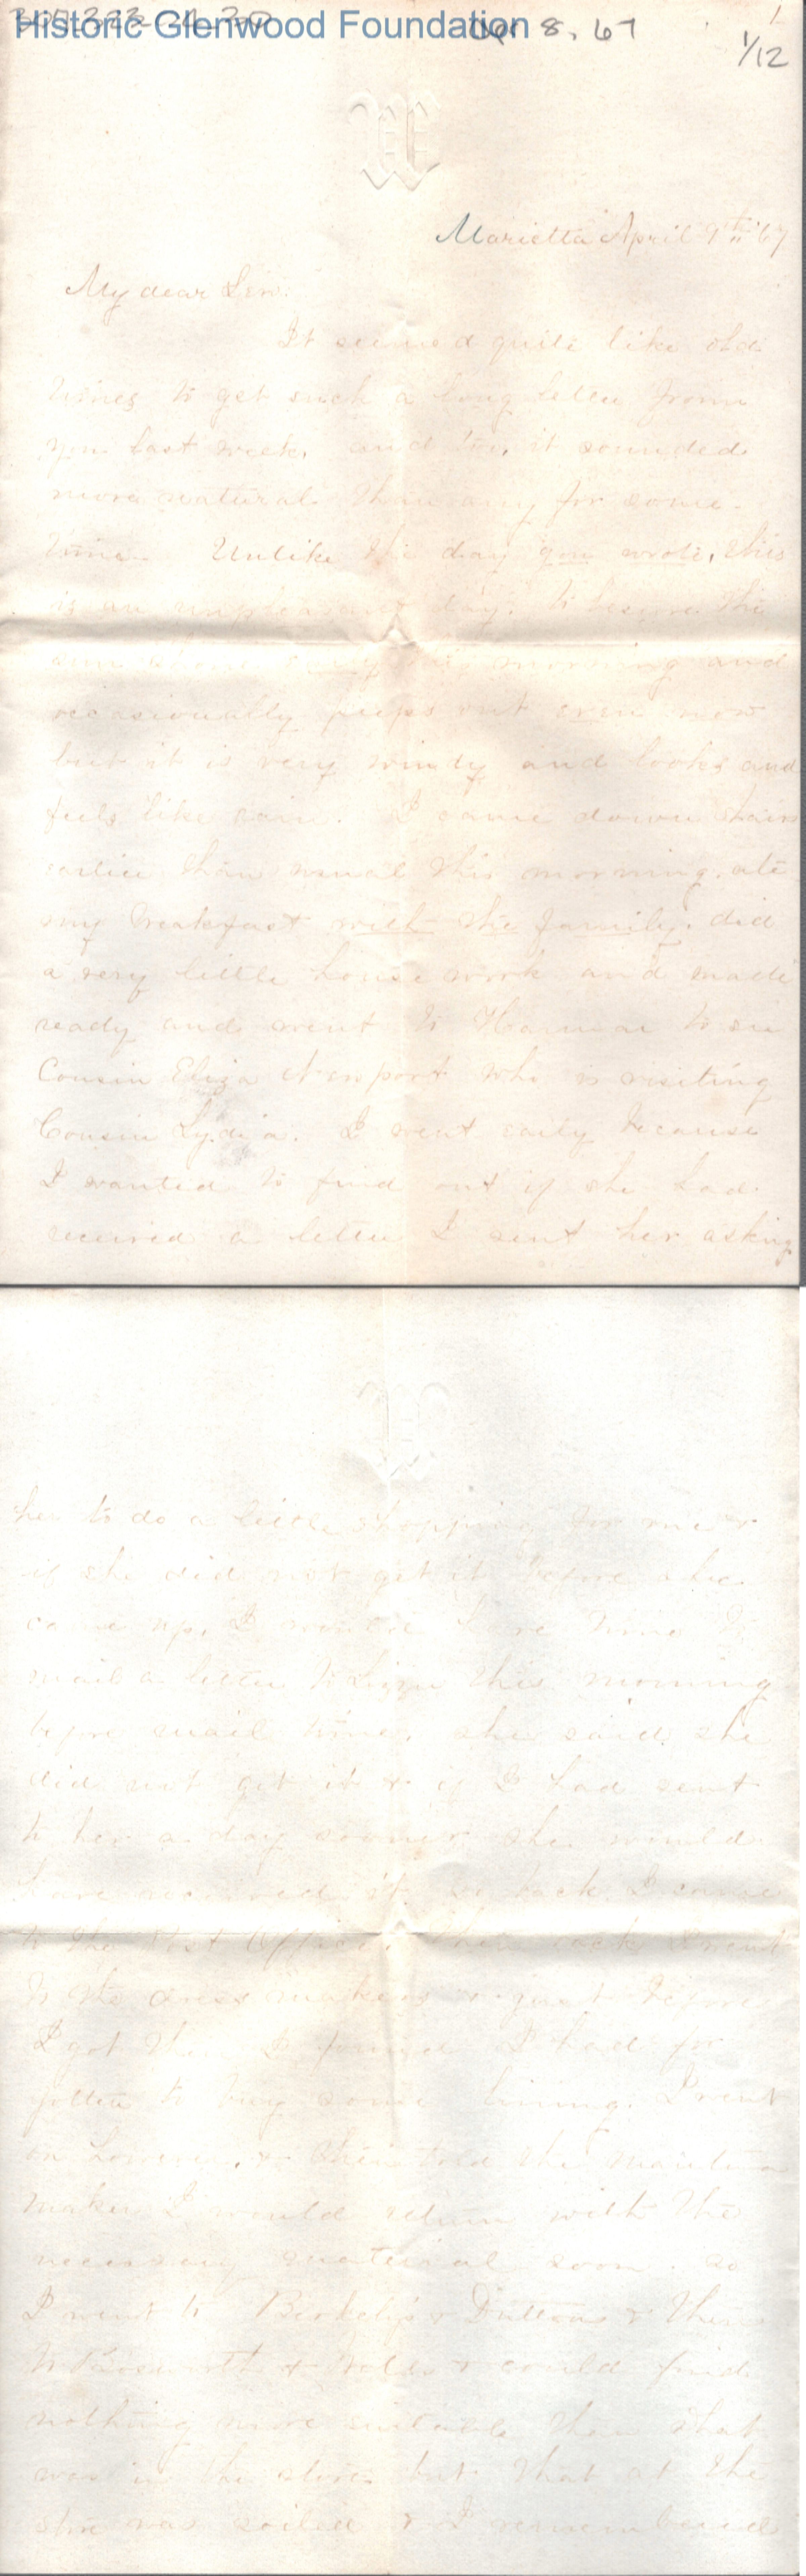 Historic Glenwood Foundation
8, 67
1
1/12
W
Marietta April 9th " 67
My dear
It seemed quite like old
times to get such a long letter from
you last week, and too, it sounded
more natural than any for some
time. Unlike the day you wrote, this
is an unpleasant day. To be sure the
sun shone early this morning and
occasionally peeps out even now
but it is very windy and looks and
feels like rain. I came down stairs
earlier than usual this morning, ate
my breakfast with the family, did
a very little house work and made
ready and went to Harmar to see
Cousin Eliza Newport who is visiting
Cousin Lydia. I went early because
I wanted to find out if she had
received a letter I sent her asking
W
her to do a little shopping for me &
if she did not get it before she
came up, I would have time to
mail a letter to Lizzie this morning
before mail time. she said she
did not get it & if I had sent
to her a day sooner she would
have received it. so back I came
to the Post Office. then back I went
to the dress makers & just before
I got there I found I had for
gotten to buy some lining. I went
on however, & then told the mantua
maker I would return with the
necessary material soon. so
I went to & Duttons & then
to Bosworth & Wells & could find
nothing more suitable than what
was in the store but that at the
store was soiled & I remembered